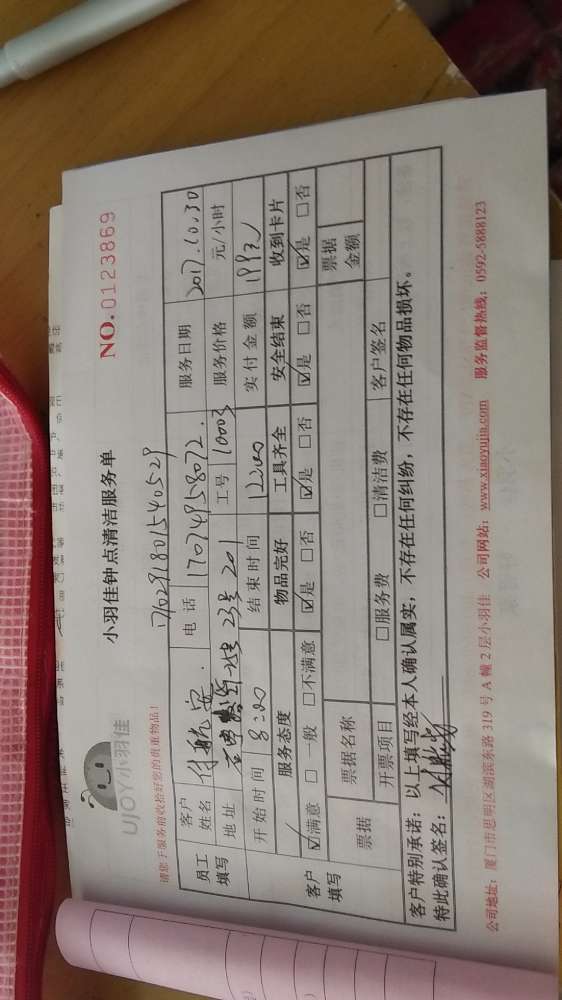 UJOY小羽佳
小羽佳钟点清洁服务单
NO.0123869
请您于服务前收拾好您的贵重物品!
1710291801540529
员工填写
客户姓名 付航 电话 17074958072. 服务日期 2017.10.30
地址 23号 201 工号 10003 服务价格 元/小时
开始时间 8:00 结束时间 12:00 实付金额 199元
客户填写
服务态度 物品完好 工具齐全 安全结束 收到卡片
☑满意 □一般 □不满意 ☑是 □否 ☑是 □否 ☑是 □否 ☑是 □否
票据 票据名称 票据金额
开票项目 □服务费 □清洁费 客户签名
客户特别承诺:以上填写经本人确认属实,不存在任何纠纷,不存在任何物品损坏。
特此确认签名:
公司地址:厦门市思明区湖滨东路 319 号 A 幢 2 层小羽佳 公司网站:www.xiaoyujia.com 服务监督热线:0592-5888123